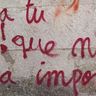 a tu
que n
a impo